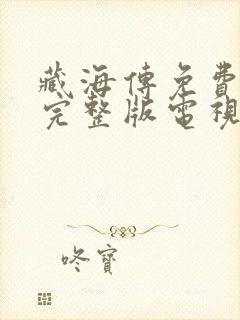 藏海傳免費
完整版電視
咚寶